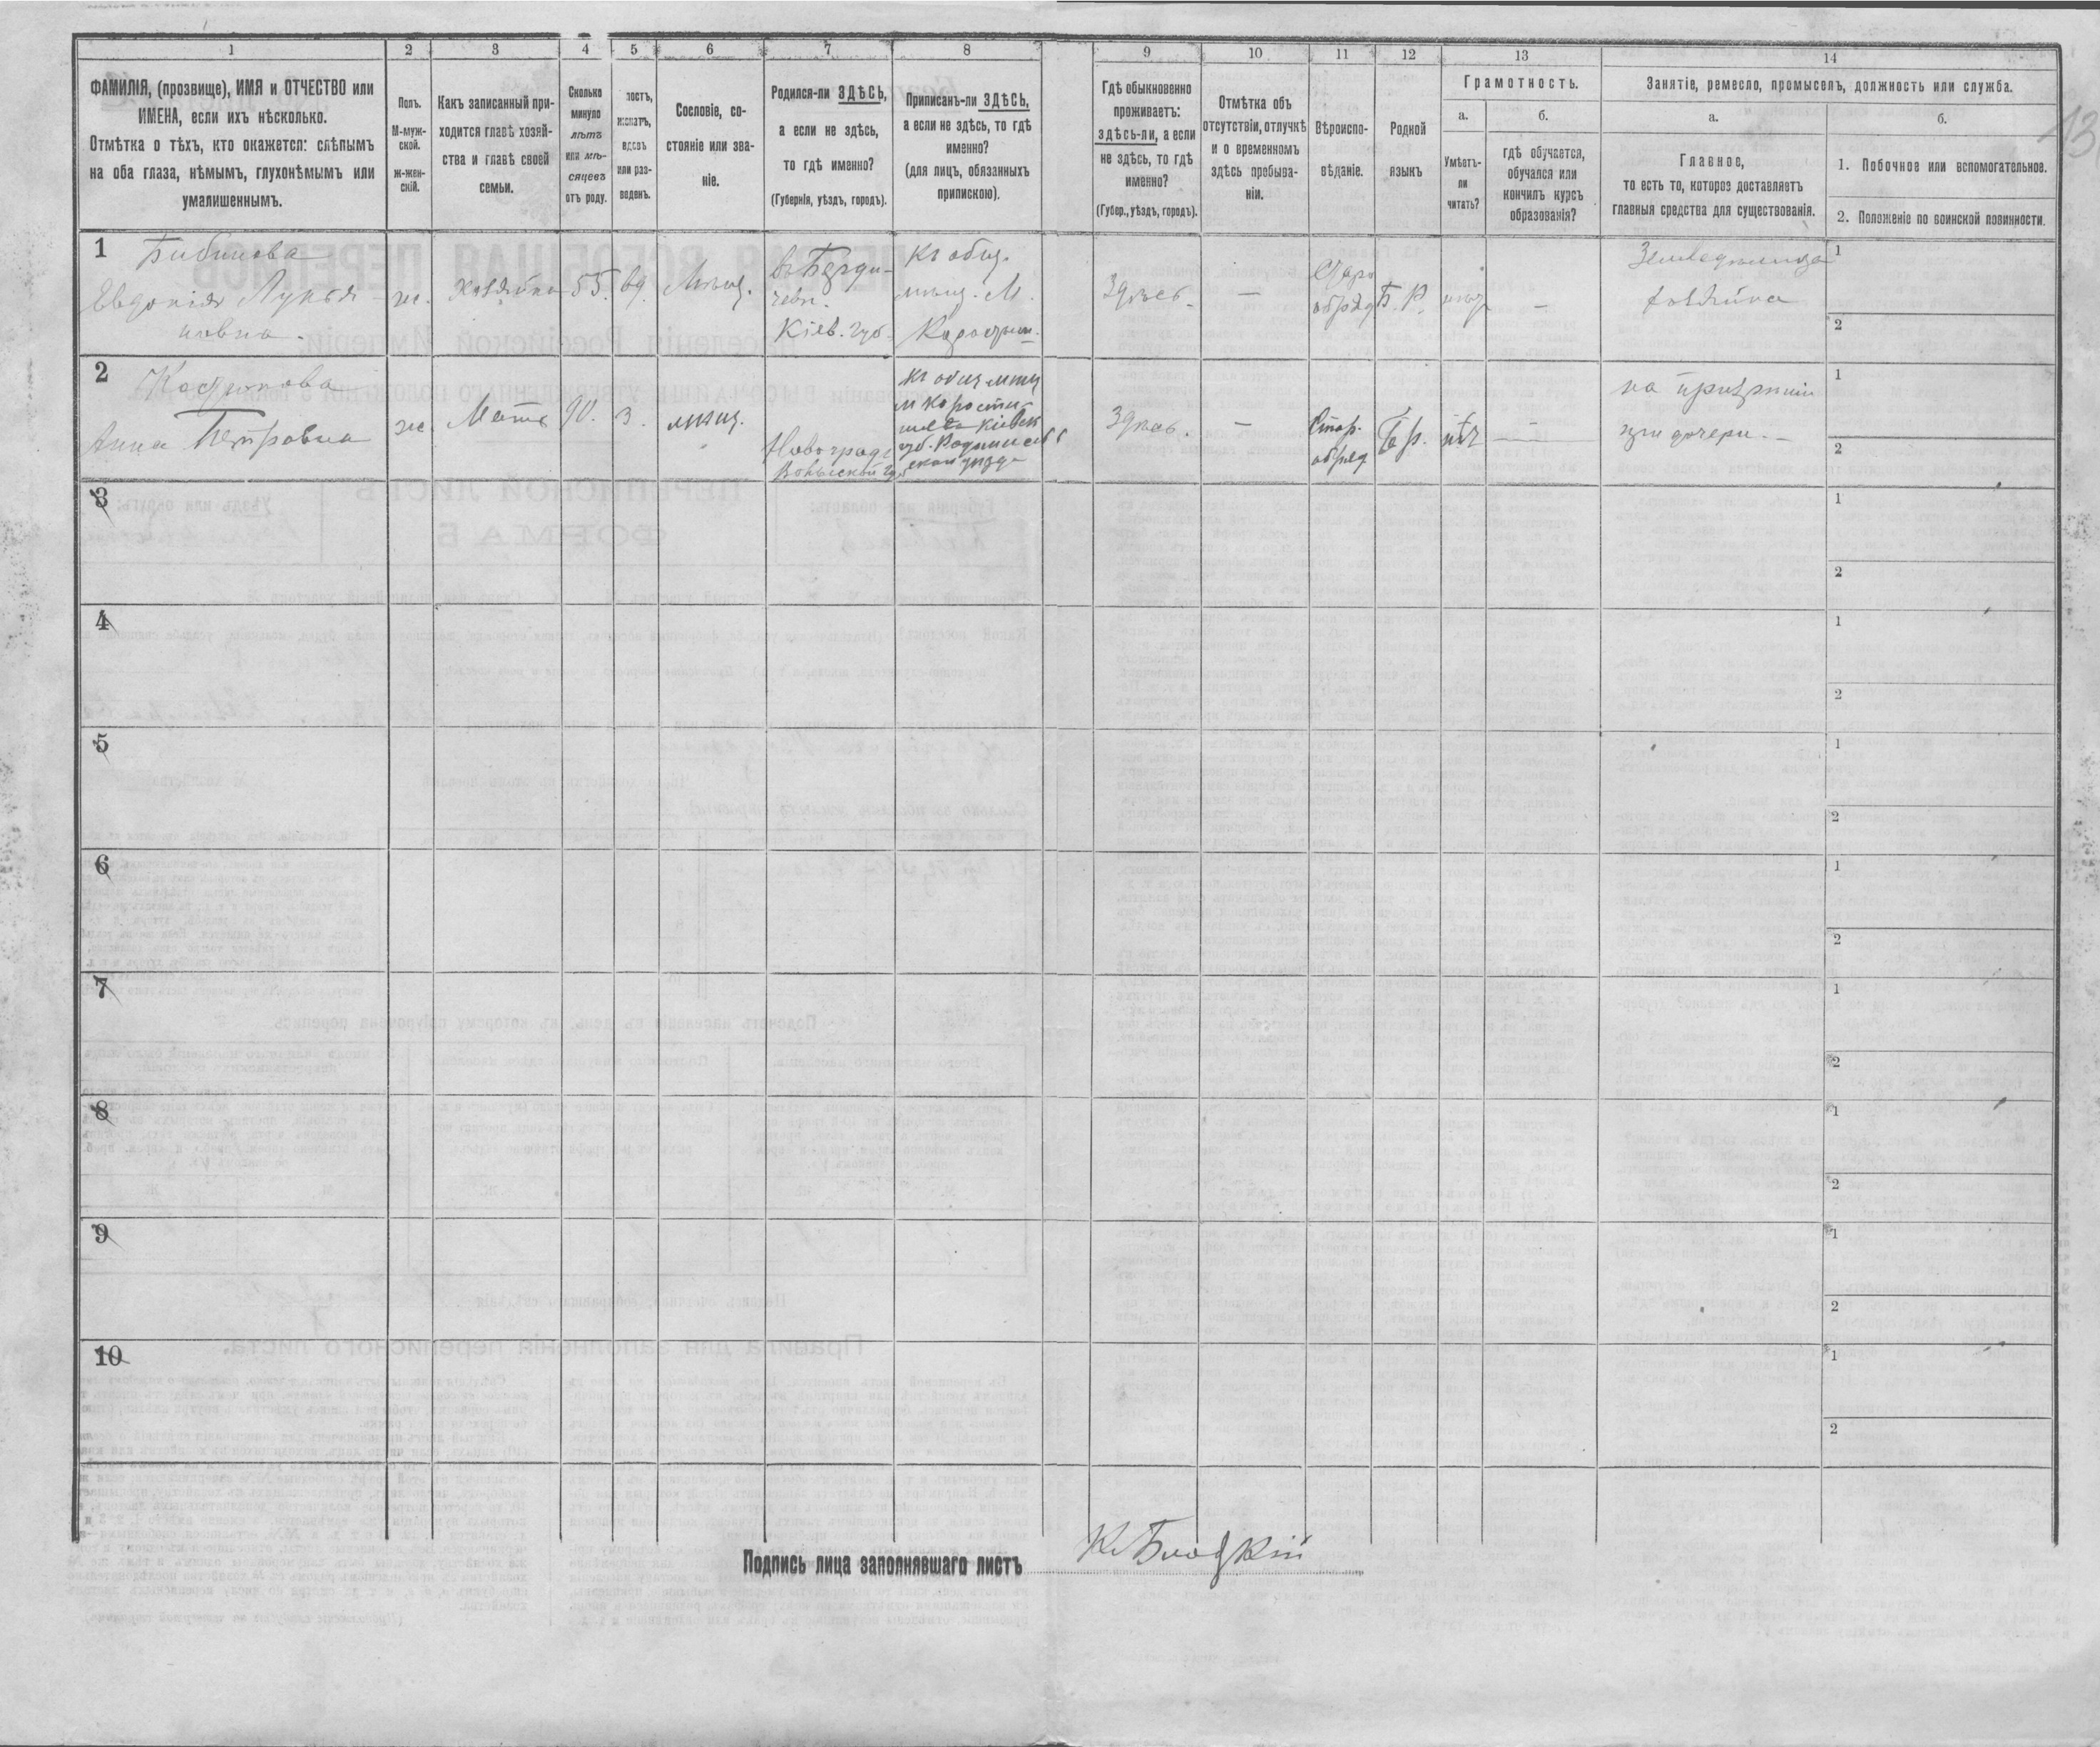 1 2 3 4 5 6 7 8 9 10 11 12 13 14
ФАМИЛІЯ, (прозвище), ИМЯ и ОТЧЕСТВО или
ИМЕНА, если ихъ нѣсколько.
Отмѣтка о тѣхъ, кто окажется: слѣпымъ
на оба глаза, нѣмымъ, глухонѣмымъ или
умалишеннымъ.
Полъ.
М-муж-
ской.
ж-жен-
скій.
Какъ записанный при-
ходится главѣ хозяй-
ства и главѣ своей
семьи.
Сколько
минуло
лѣтъ
или мѣ-
сяцевъ
отъ роду.
лостъ,
женатъ,
вдовъ
или раз-
веденъ.
Сословіе, со-
стояніе или зва-
ніе.
Родился-ли ЗДѢСЬ,
а если не здѣсь,
то гдѣ именно?
(Губернія, уѣздъ, городъ).
Приписанъ-ли ЗДѢСЬ,
а если не здѣсь, то гдѣ
именно?
(для лицъ, обязанныхъ
припискою).
Гдѣ обыкновенно
проживаетъ:
здѣсь-ли, а если
не здѣсь, то гдѣ
именно?
(Губер., уѣздъ, городъ).
Отмѣтка объ
отсутствіи, отлучкѣ
и о временномъ
здѣсь пребыва-
ніи.
Вѣроиспо-
вѣданіе.
Родной
языкъ
Грамотность.
а.
Умѣетъ-
ли
читать?
б.
гдѣ обучается,
обучался или
кончилъ курсъ
образованія?
Занятіе, ремесло, промыселъ, должность или служба.
а.
Главное,
то есть то, которое доставляетъ
главныя средства для существованія.
б.
1. Побочное или вспомогательное.
2. Положеніе по воинской повинности.
13
1
Бибикова
Евдокія Лукья-
новна.
ж.
хозяйка
55.
вд.
Мѣщ.
въ Берди-
чевѣ.
Кіев. губ.
Къ общ.
мѣщ. М.
Коростыш.
Здѣсь.
—
Старо
обряд
В. Р.
нѣт
—
Земледѣлица
хозяйка
1
2
2
Анна Петровна
же.
Мать
90.
з.
мѣщ.
Новоградъ
Волынской гу
къ общ мѣщ
м Корости-
шева Кіевск
губ. Радомысль
ской уѣзда
Здѣсь.
—
Стар.
обряд
В р.
нѣт
—
на
при дочери. —
1
2
3
1
2
4
1
2
5
1
2
6
1
2
7
1
2
8
1
2
9
1
2
10
1
2
Подпись лица заполнявшаго листъ